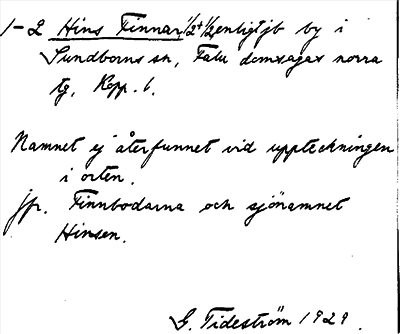 1-2 Hins Finnar 1/2+1/2 enligt jb by i
Sundborns sn, Falu domsagas norra
tg, Kopp. l.
Namnet ej återfunnet vid uppteckningen
i orten.
Jfr. Finnbodarna och sjönamnet
Hinsen.
G. Tideström 1929.